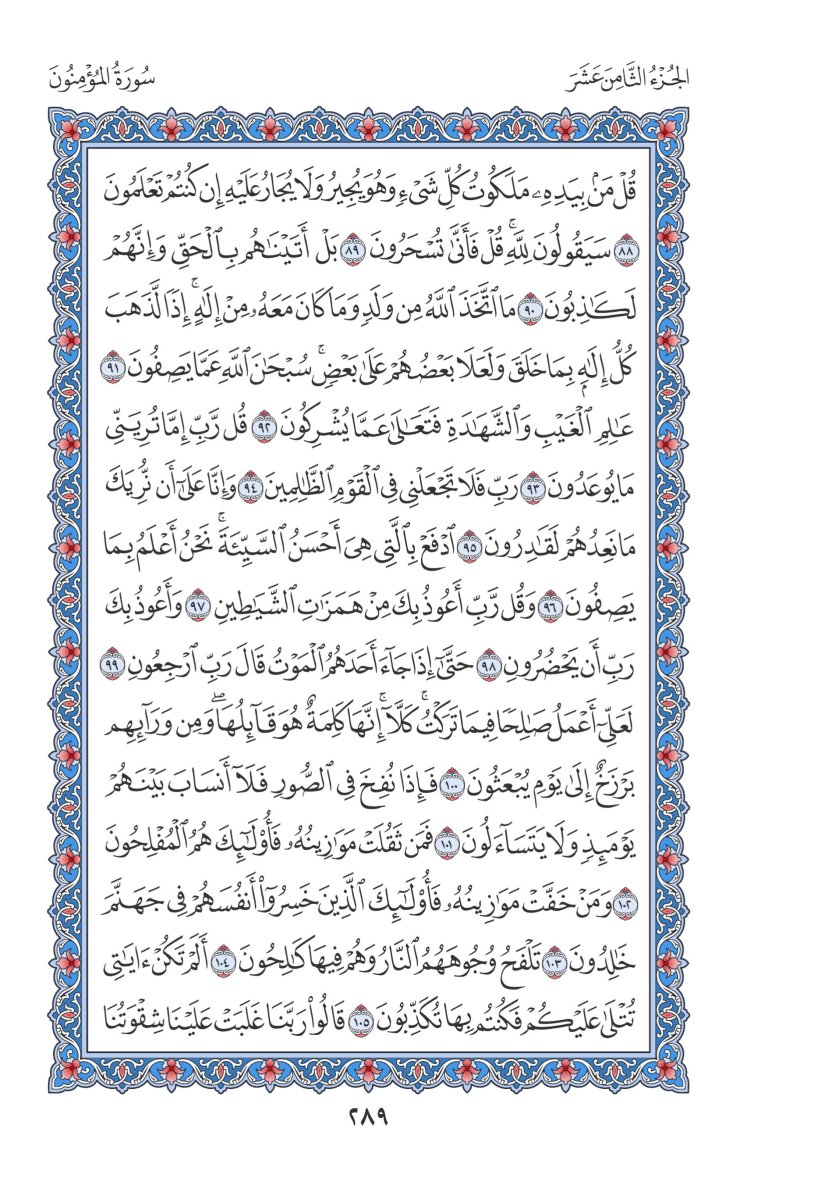 الجُزْءُ الثَّامِنَ عَشَرَ
سُورَةُ المُؤْمِنُونَ
قُلْ مَنۢ بِيَدِهِۦ مَلَكُوتُ كُلِّ شَىْءٍ وَهُوَ يُجِيرُ وَلَا يُجَارُ عَلَيْهِ إِن كُنتُمْ تَعْلَمُونَ
٨٨ سَيَقُولُونَ لِلَّهِ ۚ قُلْ فَأَنَّىٰ تُسْحَرُونَ ٨٩ بَلْ أَتَيْنَٰهُم بِٱلْحَقِّ وَإِنَّهُمْ
لَكَٰذِبُونَ ٩٠ مَا ٱتَّخَذَ ٱللَّهُ مِن وَلَدٍ وَمَا كَانَ مَعَهُۥ مِنْ إِلَٰهٍ ۚ إِذًا لَّذَهَبَ
كُلُّ إِلَٰهٍۭ بِمَا خَلَقَ وَلَعَلَا بَعْضُهُمْ عَلَىٰ بَعْضٍ ۚ سُبْحَٰنَ ٱللَّهِ عَمَّا يَصِفُونَ ٩١
عَٰلِمِ ٱلْغَيْبِ وَٱلشَّهَٰدَةِ فَتَعَٰلَىٰ عَمَّا يُشْرِكُونَ ٩٢ قُل رَّبِّ إِمَّا تُرِيَنِّى
مَا يُوعَدُونَ ٩٣ رَبِّ فَلَا تَجْعَلْنِى فِى ٱلْقَوْمِ ٱلظَّٰلِمِينَ ٩٤ وَإِنَّا عَلَىٰٓ أَن نُّرِيَكَ
مَا نَعِدُهُمْ لَقَٰدِرُونَ ٩٥ ٱدْفَعْ بِٱلَّتِى هِىَ أَحْسَنُ ٱلسَّيِّئَةَ ۚ نَحْنُ أَعْلَمُ بِمَا
يَصِفُونَ ٩٦ وَقُل رَّبِّ أَعُوذُ بِكَ مِنْ هَمَزَٰتِ ٱلشَّيَٰطِينِ ٩٧ وَأَعُوذُ بِكَ
رَبِّ أَن يَحْضُرُونِ ٩٨ حَتَّىٰٓ إِذَا جَآءَ أَحَدَهُمُ ٱلْمَوْتُ قَالَ رَبِّ ٱرْجِعُونِ ٩٩
لَعَلِّىٓ أَعْمَلُ صَٰلِحًا فِيمَا تَرَكْتُ ۚ كَلَّآ ۚ إِنَّهَا كَلِمَةٌ هُوَ قَآئِلُهَا ۖ وَمِن وَرَآئِهِم
بَرْزَخٌ إِلَىٰ يَوْمِ يُبْعَثُونَ ١٠٠ فَإِذَا نُفِخَ فِى ٱلصُّورِ فَلَآ أَنسَابَ بَيْنَهُمْ
يَوْمَئِذٍ وَلَا يَتَسَآءَلُونَ ١٠١ فَمَن ثَقُلَتْ مَوَٰزِينُهُۥ فَأُو۟لَٰٓئِكَ هُمُ ٱلْمُفْلِحُونَ
١٠٢ وَمَنْ خَفَّتْ مَوَٰزِينُهُۥ فَأُو۟لَٰٓئِكَ ٱلَّذِينَ خَسِرُوٓا۟ أَنفُسَهُمْ فِى جَهَنَّمَ
خَٰلِدُونَ ١٠٣ تَلْفَحُ وُجُوهَهُمُ ٱلنَّارُ وَهُمْ فِيهَا كَٰلِحُونَ ١٠٤ أَلَمْ تَكُنْ ءَايَٰتِى
تُتْلَىٰ عَلَيْكُمْ فَكُنتُم بِهَا تُكَذِّبُونَ ١٠٥ قَالُوا۟ رَبَّنَا غَلَبَتْ عَلَيْنَا شِقْوَتُنَا
٢٨٩